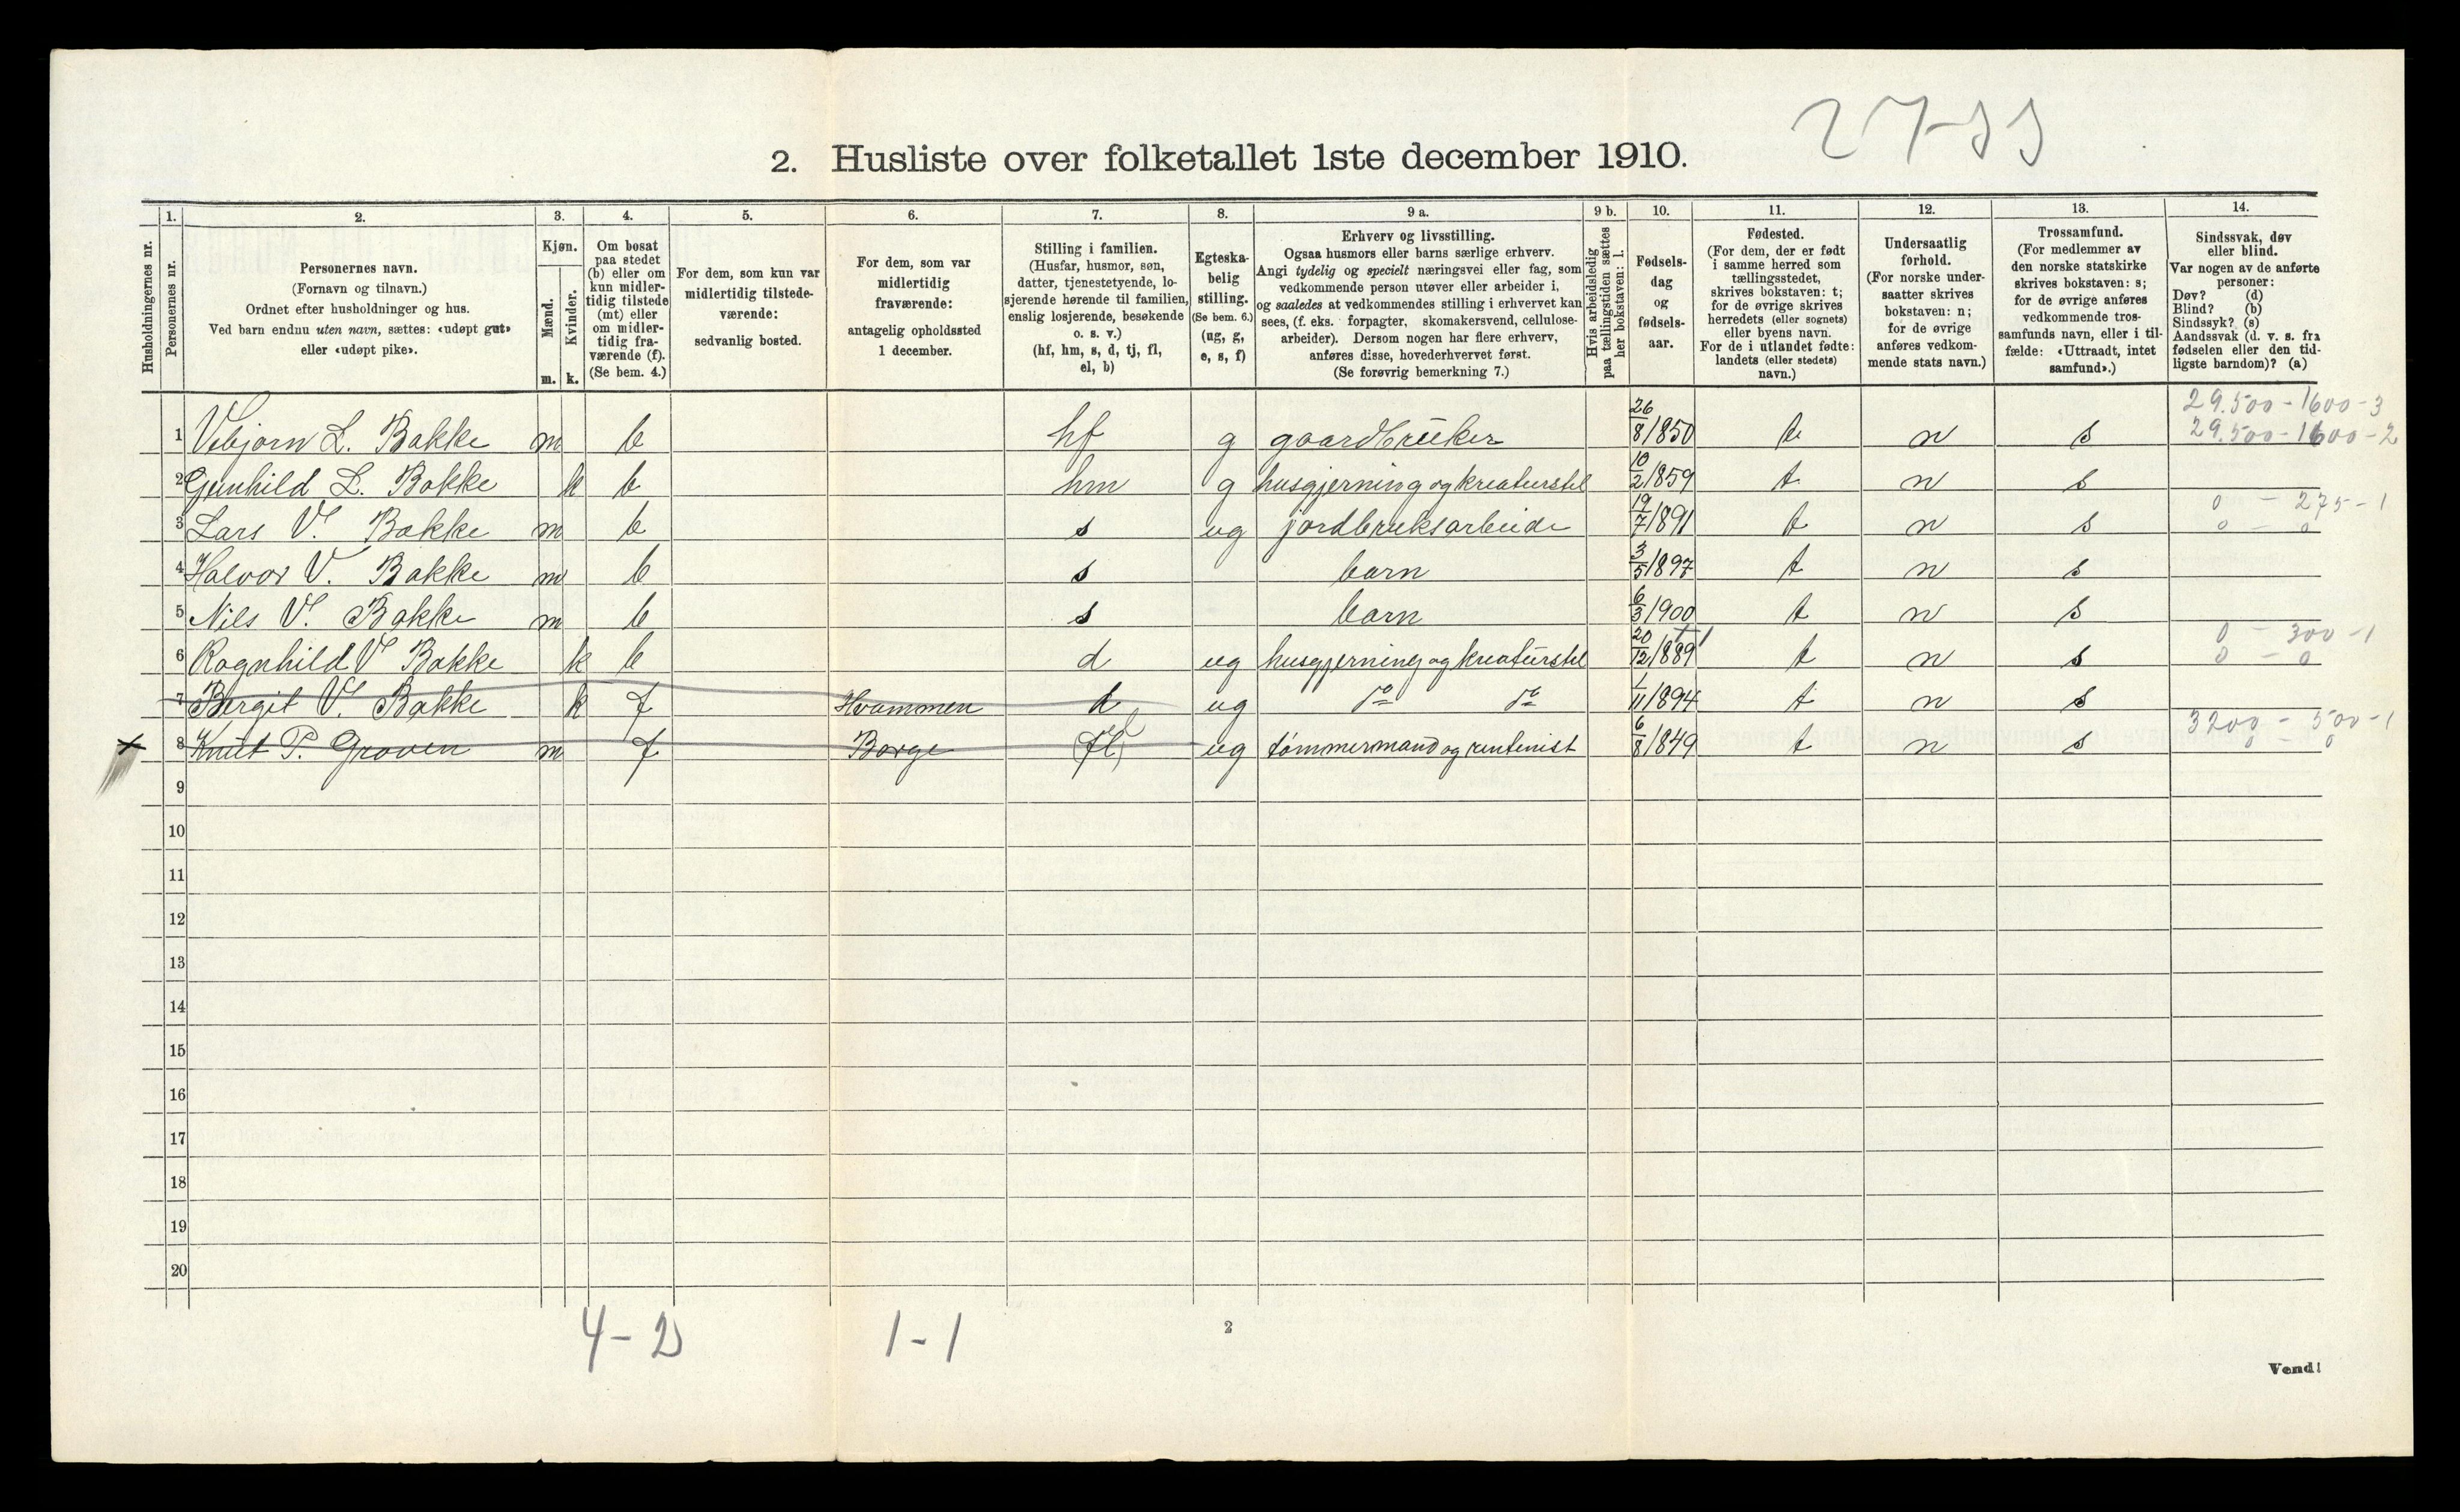 27-33
2. Husliste over folketallet 1ste december 1910.
Husholdningernes nr.
1. Personernes nr.
2. Personernes navn. (Fornavn og tilnavn.) Ordnet efter husholdninger og hus. Ved barn endnu uten navn, sættes: «udøpt gut» eller «udøpt pike».
3. Kjøn. Mænd. m. Kvinder. k.
4. Om bosat paa stedet (b) eller om kun midlertidig tilstede (mt) eller om midlertidig fraværende (f). (Se bem. 4.)
5. For dem, som kun var midlertidig tilstedeværende: sedvanlig bosted.
6. For dem, som var midlertidig fraværende: antagelig opholdssted 1 december.
7. Stilling i familien. (Husfar, husmor, søn, datter, tjenestetyende, losjerende hørende til familien, enslig losjerende, besøkende o. s. v.) (hf, hm, s, d, tj, fl, el, b)
8. Egteskabelig stilling. (Se bem. 6.) (ug, g, e, s, f)
9 a. Erhverv og livsstilling. Ogsaa husmors eller barns særlige erhverv. Angi tydelig og specielt næringsvei eller fag, som vedkommende person utøver eller arbeider i, og saaledes at vedkommendes stilling i erhvervet kan sees, (f. eks. forpagter, skomakersvend, cellulosearbeider). Dersom nogen har flere erhverv, anføres disse, hovederhvervet først. (Se forøvrig bemerkning 7.)
9 b. Hvis arbeidsledig paa tællingstiden sættes her bokstaven: l.
10. Fødselsdag og fødselsaar.
11. Fødested. (For dem, der er født i samme herred som tællingsstedet, skrives bokstaven: t; for de øvrige skrives herredets (eller sognets) eller byens navn. For de i utlandet fødte: landets (eller stedets) navn.)
12. Undersaatlig forhold. (For norske undersaatter skrives bokstaven: n; for de øvrige anføres vedkommende stats navn.)
13. Trossamfund. (For medlemmer av den norske statskirke skrives bokstaven: s; for de øvrige anføres vedkommende trossamfunds navn, eller i tilfælde: «Uttraadt, intet samfund».)
14. Sindssvak, døv eller blind. Var nogen av de anførte personer: Døv? (d) Blind? (b) Sindssyk? (s) Aandssvak (d. v. s. fra fødselen eller den tidligste barndom)? (a)
29.500-1600-3
1 Vebjørn L. Bakke m b hf g gaardbruker 26/8/1850 t n s 29.500-1600-2
2 Gunhild L. Bakke k b hm g husgjerning og kreaturstel 10/2/1859 t n s
0 - 275-1
3 Lars V. Bakke m b s ug jordbruksarbeide 19/7/1891 t n s 0 - 0
4 Halvor V. Bakke m b s barn 3/5/1897 t n s
5 Nils V. Bakke m b s barn 6/3/1900 t n s
0 - 300-1
6 Ragnhild V Bakke k b d ug husgjerning og kreaturstel 20/12/1889 t n s 0 - 0
7 Bergit V. Bakke k f Hvammen d ug do do 1/11/1894 t n s
3200 - 500-1
8 Knut P. Groven m f Borge fl ug tømmermand og rentenist 6/8/1849 t n s 0 - 0
9
10
11
12
13
14
15
16
17
18
19
20
4-2 1-1
2
Vend!